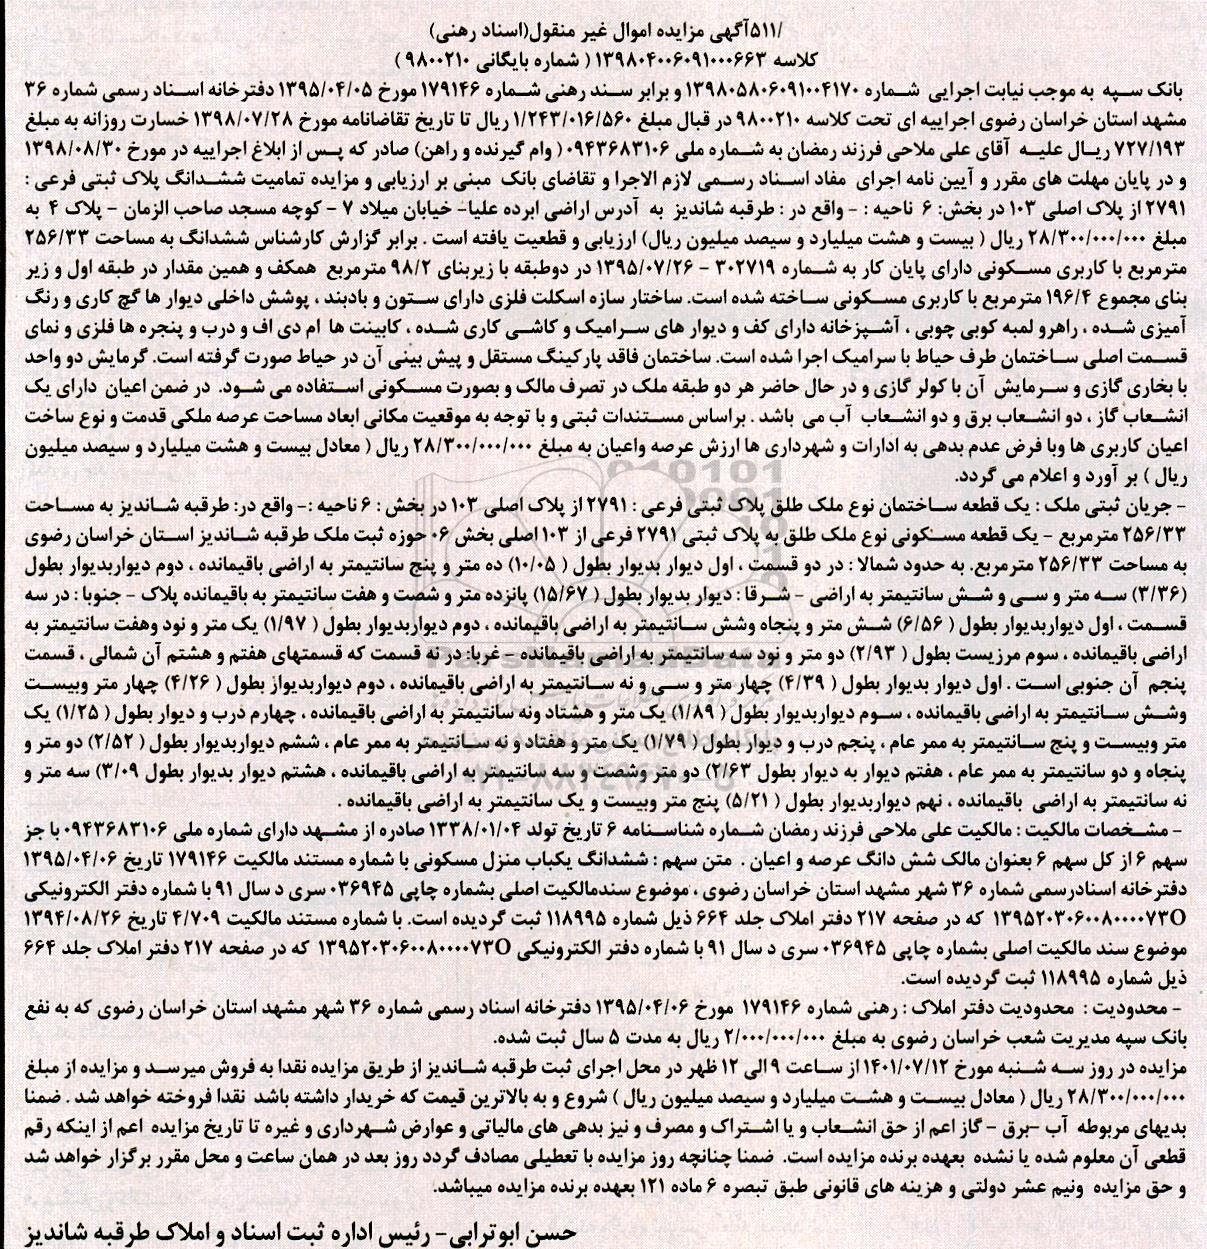 /۵۱۱آگهی مزایده اموال غیر منقول(اسناد رهنی)
کلاسه ۱۳۹۸۰۴۰۰۶۰۹۱۰۰۰۶۶۳ ( شماره بایگانی ۹۸۰۰۲۱۰ )
بانک سپه به موجب نیابت اجرایی شماره ۱۳۹۸۰۵۸۰۶۰۹۱۰۰۴۱۷۰ و برابر سند رهنی شماره ۱۷۹۱۴۶ مورخ ۱۳۹۵/۰۴/۰۵ دفترخانه اسناد رسمی شماره ۳۶
مشهد استان خراسان رضوی اجراییه ای تحت کلاسه ۹۸۰۰۲۱۰ در قبال مبلغ ۱/۲۴۳/۰۱۶/۵۶۰ ریال تا تاریخ تقاضانامه مورخ ۱۳۹۸/۰۷/۲۸ خسارت روزانه به مبلغ
۷۲۷/۱۹۳ ریال علیه آقای علی ملاحی فرزند رمضان به شماره ملی ۰۹۴۳۶۸۳۱۰۶ ( وام گیرنده و راهن) صادر که پس از ابلاغ اجراییه در مورخ ۱۳۹۸/۰۸/۳۰
و در پایان مهلت های مقرر و آیین نامه اجرای مفاد اسناد رسمی لازم الاجرا و تقاضای بانک مبنی بر ارزیابی و مزایده تمامیت ششدانگ پلاک ثبتی فرعی :
۲۷۹۱ از پلاک اصلی ۱۰۳ در بخش: ۶ ناحیه : - واقع در : طرقبه شاندیز به آدرس اراضی ابرده علیا- خیابان میلاد ۷ - کوچه مسجد صاحب الزمان - پلاک ۴ به
مبلغ ۲۸/۳۰۰/۰۰۰/۰۰۰ ریال ( بیست و هشت میلیارد و سیصد میلیون ریال) ارزیابی و قطعیت یافته است . برابر گزارش کارشناس ششدانگ به مساحت ۲۵۶/۳۳
مترمربع با کاربری مسکونی دارای پایان کار به شماره ۳۰۲۷۱۹ - ۱۳۹۵/۰۷/۲۶ در دوطبقه با زیربنای ۹۸/۲ مترمربع همکف و همین مقدار در طبقه اول و زیر
بنای مجموع ۱۹۶/۴ مترمربع با کاربری مسکونی ساخته شده است. ساختار سازه اسکلت فلزی دارای ستون و بادبند ، پوشش داخلی دیوار ها گچ کاری و رنگ
آمیزی شده ، راهرو لمبه کوبی چوبی ، آشپزخانه دارای کف و دیوار های سرامیک و کاشی کاری شده ، کابینت ها ام دی اف و درب و پنجره ها فلزی و نمای
قسمت اصلی ساختمان طرف حیاط با سرامیک اجرا شده است. ساختمان فاقد پارکینگ مستقل و پیش بینی آن در حیاط صورت گرفته است. گرمایش دو واحد
با بخاری گازی و سرمایش آن با کولر گازی و در حال حاضر هر دو طبقه ملک در تصرف مالک و بصورت مسکونی استفاده می شود. در ضمن اعیان دارای یک
انشعاب گاز ، دو انشعاب برق و دو انشعاب آب می باشد . براساس مستندات ثبتی و با توجه به موقعیت مکانی ابعاد مساحت عرصه ملکی قدمت و نوع ساخت
اعیان کاربری ها وبا فرض عدم بدهی به ادارات و شهرداری ها ارزش عرصه واعیان به مبلغ ۲۸/۳۰۰/۰۰۰/۰۰۰ ریال ( معادل بیست و هشت میلیارد و سیصد میلیون
ریال ) بر آورد و اعلام می گردد.
- جریان ثبتی ملک : یک قطعه ساختمان نوع ملک طلق پلاک ثبتی فرعی : ۲۷۹۱ از پلاک اصلی ۱۰۳ در بخش : ۶ ناحیه :- واقع در: طرقبه شاندیز به مساحت
۲۵۶/۳۳ مترمربع - یک قطعه مسکونی نوع ملک طلق به پلاک ثبتی ۲۷۹۱ فرعی از ۱۰۳ اصلی بخش ۰۶ حوزه ثبت ملک طرقبه شاندیز استان خراسان رضوی
به مساحت ۲۵۶/۳۳ مترمربع. به حدود شمالا : در دو قسمت ، اول دیوار بدیوار بطول ( ۱۰/۰۵) ده متر و پنج سانتیمتر به اراضی باقیمانده ، دوم دیواربدیوار بطول
(۳/۳۶) سه متر و سی و شش سانتیمتر به اراضی - شرقا : دیوار بدیوار بطول ( ۱۵/۶۷) پانزده متر و شصت و هفت سانتیمتر به باقیمانده پلاک - جنوبا : در سه
قسمت ، اول دیواربدیوار بطول ( ۶/۵۶) شش متر و پنجاه وشش سانتیمتر به اراضی باقیمانده ، دوم دیواربدیوار بطول ( ۱/۹۷) یک متر و نود وهفت سانتیمتر به
اراضی باقیمانده ، سوم مرزیست بطول ( ۲/۹۳) دو متر و نود سه سانتیمتر به اراضی باقیمانده - غربا: در نه قسمت که قسمتهای هفتم و هشتم آن شمالی ، قسمت
پنجم آن جنوبی است . اول دیوار بدیوار بطول ( ۴/۳۹) چهار متر و سی و نه سانتیمتر به اراضی باقیمانده ، دوم دیواربدیوار بطول ( ۴/۲۶) چهار متر وبیست
وشش سانتیمتر به اراضی باقیمانده ، سوم دیواربدیوار بطول ( ۱/۸۹) یک متر و هشتاد ونه سانتیمتر به اراضی باقیمانده ، چهارم درب و دیوار بطول ( ۱/۲۵) یک
متر وبیست و پنج سانتیمتر به ممر عام ، پنجم درب و دیوار بطول ( ۱/۷۹) یک متر و هفتاد و نه سانتیمتر به ممر عام ، ششم دیواربدیوار بطول ( ۲/۵۲) دو متر و
پنجاه و دو سانتیمتر به ممر عام ، هفتم دیوار به دیوار بطول ۲/۶۳) دو متر وشصت و سه سانتیمتر به اراضی باقیمانده ، هشتم دیوار بدیوار بطول ۳/۰۹) سه متر و
نه سانتیمتر به اراضی باقیمانده ، نهم دیواربدیوار بطول ( ۵/۲۱) پنج متر وبیست و یک سانتیمتر به اراضی باقیمانده .
- مشخصات مالکیت : مالکیت علی ملاحی فرزند رمضان شماره شناسنامه ۶ تاریخ تولد ۱۳۳۸/۰۱/۰۴ صادره از مشهد دارای شماره ملی ۰۹۴۳۶۸۳۱۰۶ با جز
سهم ۶ از کل سهم ۶ بعنوان مالک شش دانگ عرصه و اعیان . متن سهم : ششدانگ یکباب منزل مسکونی با شماره مستند مالکیت ۱۷۹۱۴۶ تاریخ ۱۳۹۵/۰۴/۰۶
دفترخانه اسنادرسمی شماره ۳۶ شهر مشهد استان خراسان رضوی ، موضوع سندمالکیت اصلی بشماره چاپی ۰۳۶۹۴۵ سری د سال ۹۱ با شماره دفتر الکترونیکی
۱۳۹۵۲۰۳۰۶۰۰۸۰۰۰۰۷۳O که در صفحه ۲۱۷ دفتر املاک جلد ۶۶۴ ذیل شماره ۱۱۸۹۹۵ ثبت گردیده است. با شماره مستند مالکیت ۴/۷۰۹ تاریخ ۱۳۹۴/۰۸/۲۶
موضوع سند مالکیت اصلی بشماره چاپی ۰۳۶۹۴۵ سری د سال ۹۱ با شماره دفتر الکترونیکی ۱۳۹۵۲۰۳۰۶۰۰۸۰۰۰۰۷۳O که در صفحه ۲۱۷ دفتر املاک جلد ۶۶۴
ذیل شماره ۱۱۸۹۹۵ ثبت گردیده است.
- محدودیت : محدودیت دفتر املاک : رهنی شماره ۱۷۹۱۴۶ مورخ ۱۳۹۵/۰۴/۰۶ دفترخانه اسناد رسمی شماره ۳۶ شهر مشهد استان خراسان رضوی که به نفع
بانک سپه مدیریت شعب خراسان رضوی به مبلغ ۲/۰۰۰/۰۰۰/۰۰۰ ریال به مدت ۵ سال ثبت شده.
مزایده در روز سه شنبه مورخ ۱۴۰۱/۰۷/۱۲ از ساعت ۹ الی ۱۲ ظهر در محل اجرای ثبت طرقبه شاندیز از طریق مزایده نقدا به فروش میرسد و مزایده از مبلغ
۲۸/۳۰۰/۰۰۰/۰۰۰ ریال ( معادل بیست و هشت میلیارد و سیصد میلیون ریال ) شروع و به بالاترین قیمت که خریدار داشته باشد نقدا فروخته خواهد شد . ضمنا
بدیهای مربوطه آب -برق - گاز اعم از حق انشعاب و یا اشتراک و مصرف و نیز بدهی های مالیاتی و عوارض شهرداری و غیره تا تاریخ مزایده اعم از اینکه رقم
قطعی آن معلوم شده یا نشده بعهده برنده مزایده است. ضمنا چنانچه روز مزایده با تعطیلی مصادف گردد روز بعد در همان ساعت و محل مقرر برگزار خواهد شد
و حق مزایده ونیم عشر دولتی و هزینه های قانونی طبق تبصره ۶ ماده ۱۲۱ بعهده برنده مزایده میباشد.
حسن ابوترابی- رئیس اداره ثبت اسناد و املاک طرقبه شاندیز